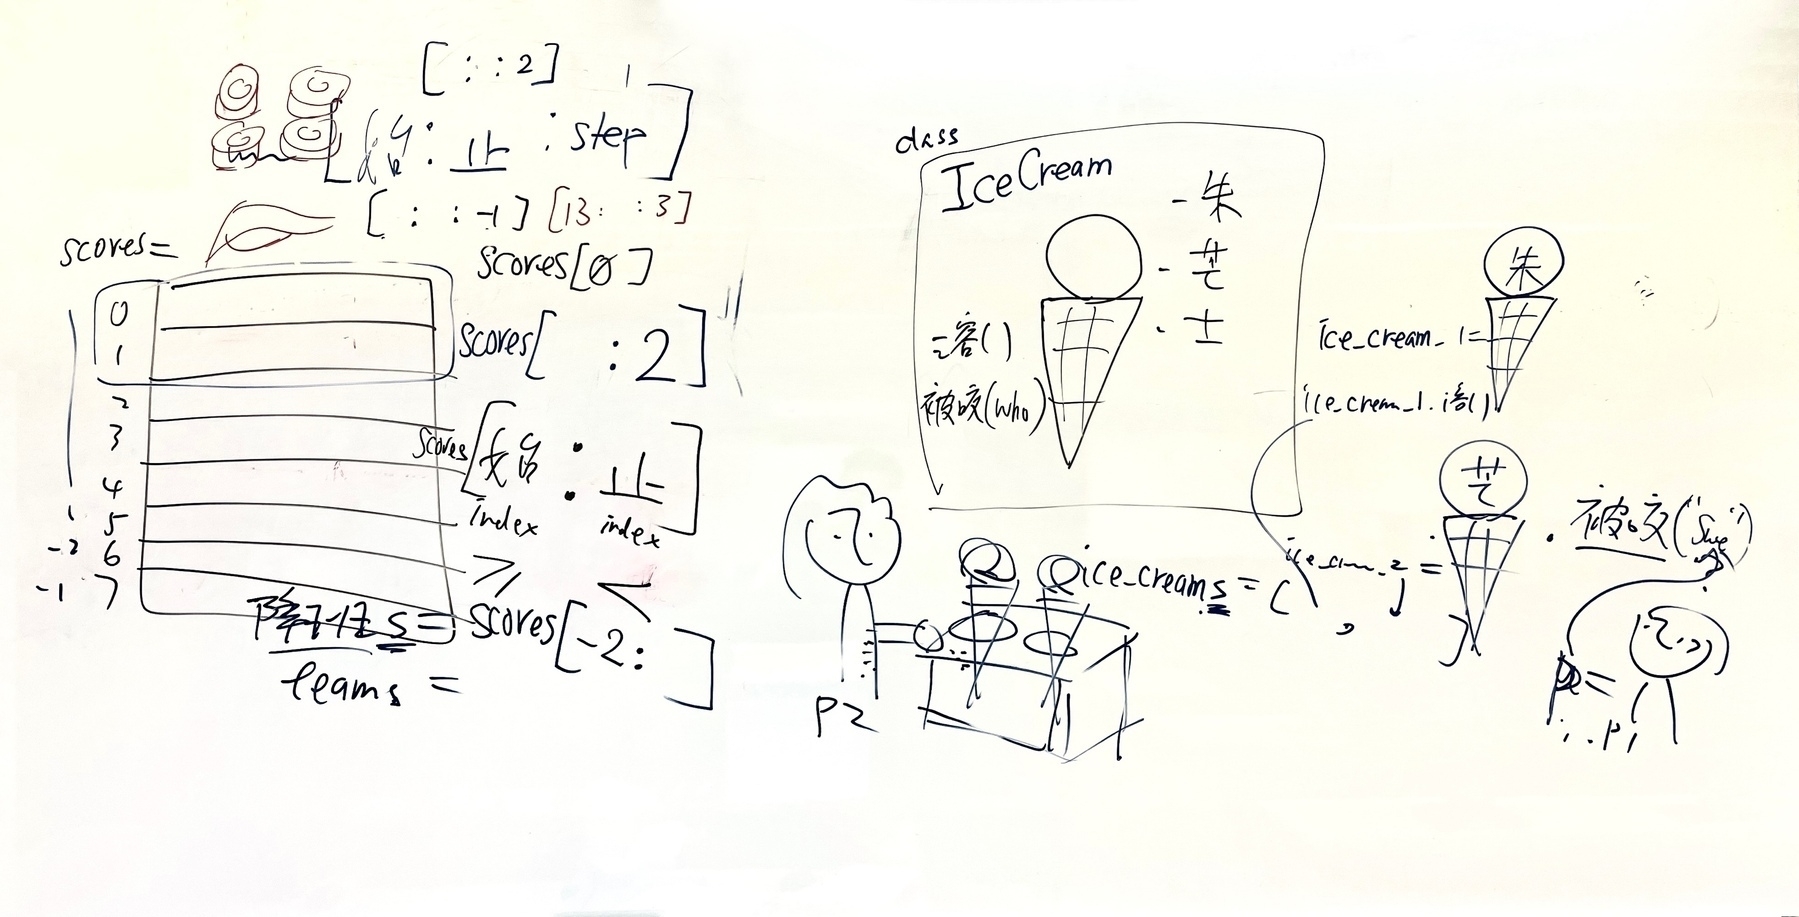 [ : : 2]
: 止 : step ]
[ : : -1] [13: :3]
scores=
scores[0]
0
1
2
3
4
5
6
7
-2
-1
scores[ :2]
scores[ : 止 ]
index index
s = scores[-2: ]
teams =
class
IceCream
- 朱
- 芒
- 士
被咬(who)
朱
ice_cream_1=
芒
. 被咬("Sue")
ice_creams = [ , ]
P2